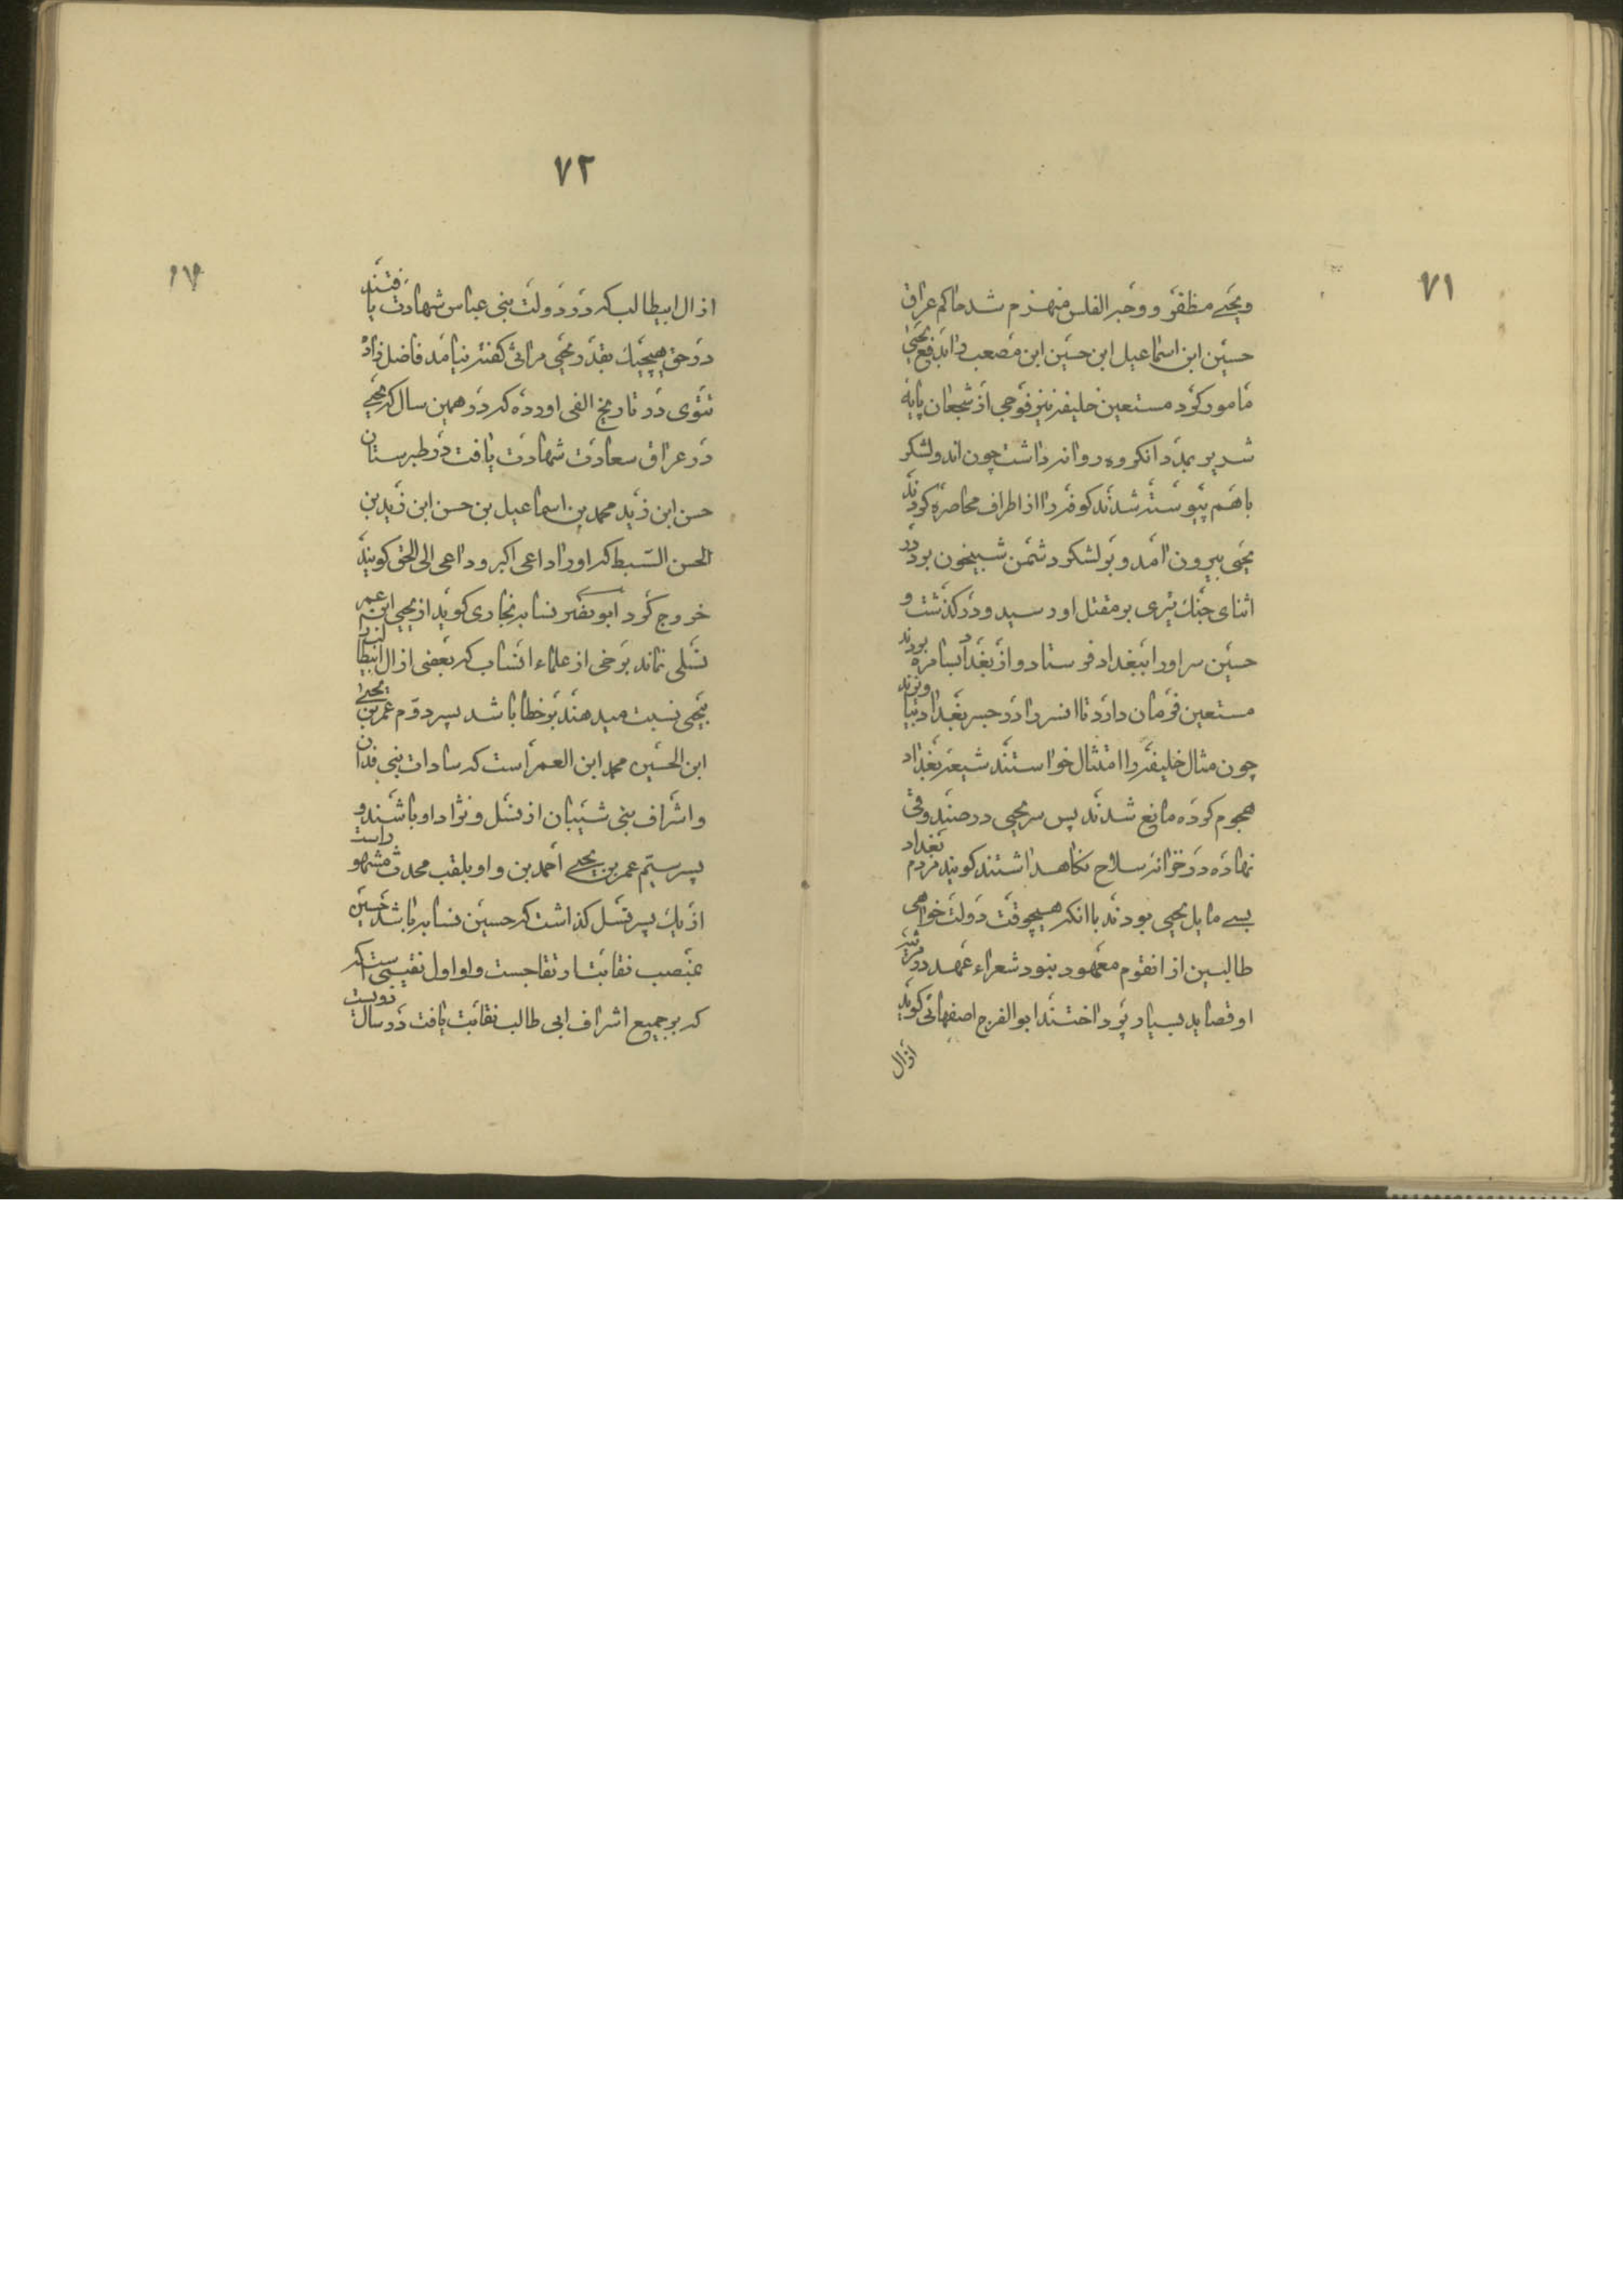 ۷۱
ویحیی مظفر و وجبر الفلس منهزم شد حاکم عراق
حسین ابن اسماعیل ابن حسین ابن مصعب را بدفع یحیی
مامور کرد مستعین خلیفه نیز فوجی از شجعان پایه
شریر بمدد انکروه روانه داشت چون اندولشکر
باهم پیوسته شدند کوفه را از اطراف محاصره کردند
یحیی بیرون امد و بر لشکر دشمن شبیخون برد در
اثنای جنک تیری بر مقتل او رسید و درکذشت و
حسین سر او را ببغداد فرستاد و از بغداد بسامره بردند
مستعین فرمان داد تا انسر را در جسر بغداد بیاویزند
چون مثال خلیفه را امتثال خواستند شیعه بغداد
هجوم کرده مانع شدند پس سر یحیی در صندوقی
نهاده در خزانه سلاح نکاهداشتند کویند مردم بغداد
بسی مایل یحیی بودند با انکه هیچوقت دولت خواهی
طالبین از انقوم معهود نبود شعراء عهد در مرثیه
او قصاید بسیار پرداختند ابو الفرج اصفهانی کوید
از ال
۷۲
از ال ابیطالب که در دولت بنی عباس شهادت یافتند
در حق هیچیک بقدر یحیی مراثی کفته نیامد فاضل زاد
تتوی در تاریخ الفی اورده که در همین سال که یحیی
در عراق سعادت شهادت یافت در طبرستان
حسن ابن زید محمد بن اسماعیل بن حسن ابن زید بن
الحسن السبط که او را داعی اکبر و داعی الی الحق کویند
خروج کرد ابو نصر نسابه بخاری کوید از یحیی ابن عمر
نسلی نماند برخی از علماء انساب که بعضی از ال ابیطالب را
بیحیی نسبت میدهند بر خطا باشد پسر دوم عمر بن یحیی
ابن الحسین محمد ابن العمر است که سادات بنی فدان
و اشراف بنی شیبان از نسل و نژاد او باشند و
پسر سیم عمر بن یحیی احمد بن و او بلقب محدث مشهور است
از یک پسر نسل کذاشت که حسین نسابه باشد حسین
بمنصب نقابت ارتقا جست و او اول نقیبی است که
که بر جمیع اشراف ابی طالب نقابت یافت در سال دویست